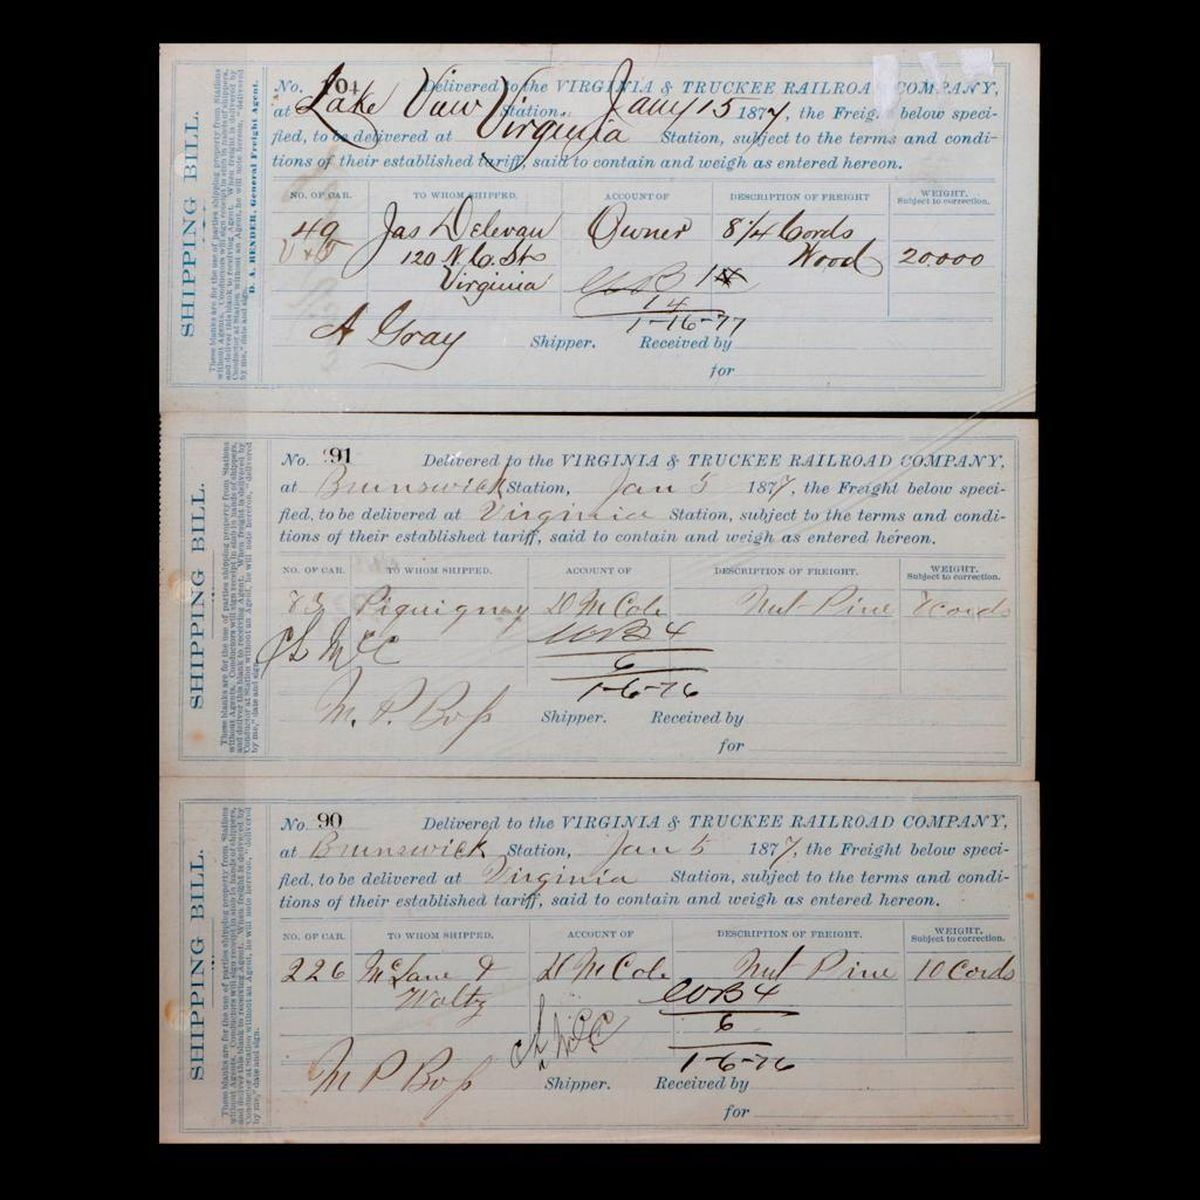 SHIPPING BILL.
These blanks are for the use of parties shipping property from Stations
without Agents. Conductors will sign receipt in stub in hands of shippers,
and deliver this blank to receiving Agent. When freight is delivered by
Conductor at Station without an Agent, he will note hereon, "delivered
by me," date and sign.
D. A. BENDER, General Freight Agent.
No. 104 Delivered to the VIRGINIA & TRUCKEE RAILROAD COMPANY,
at Lake View Station, Jany 15 1877, the Freight below speci-
fied, to be delivered at Virginia Station, subject to the terms and condi-
tions of their established tariff, said to contain and weigh as entered hereon.
NO. OF CAR. TO WHOM SHIPPED. ACCOUNT OF DESCRIPTION OF FREIGHT WEIGHT.
Subject to correction.
49 Jas Delevan Owner 8 1/4 Cords
V & T 120 N. C. St Wood 20.000
Virginia WB 14
14
1-16-77
A Gray Shipper. Received by
for
SHIPPING BILL.
These blanks are for the use of parties shipping property from Stations
without Agents. Conductors will sign receipt in stub in hands of shippers,
and deliver this blank to receiving Agent. When freight is delivered by
Conductor at Station without an Agent, he will note hereon, "delivered
by me," date and sign.
No. 91 Delivered to the VIRGINIA & TRUCKEE RAILROAD COMPANY,
at Brunswick Station, Jan 5 1877, the Freight below speci-
fied, to be delivered at Virginia Station, subject to the terms and condi-
tions of their established tariff, said to contain and weigh as entered hereon.
NO. OF CAR. TO WHOM SHIPPED. ACCOUNT OF DESCRIPTION OF FREIGHT. WEIGHT.
Subject to correction.
Piquigney D M Cole Nut Pine Cords
WB 4
6
1-6-76
M. P. Boss Shipper. Received by
for
SHIPPING BILL.
These blanks are for the use of parties shipping property from Stations
without Agents. Conductors will sign receipt in stub in hands of shippers,
and deliver this blank to receiving Agent. When freight is delivered by
Conductor at Station without an Agent, he will note hereon, "delivered
by me," date and sign.
No. 90 Delivered to the VIRGINIA & TRUCKEE RAILROAD COMPANY,
at Brunswick Station, Jan 5 1877, the Freight below speci-
fied, to be delivered at Virginia Station, subject to the terms and condi-
tions of their established tariff, said to contain and weigh as entered hereon.
NO. OF CAR. TO WHOM SHIPPED. ACCOUNT OF DESCRIPTION OF FREIGHT. WEIGHT.
Subject to correction.
226 McLane & D M Cole Nut Pine 10 Cords
Waltz WB 4
6
1-6-76
M P Boss Shipper. Received by
for